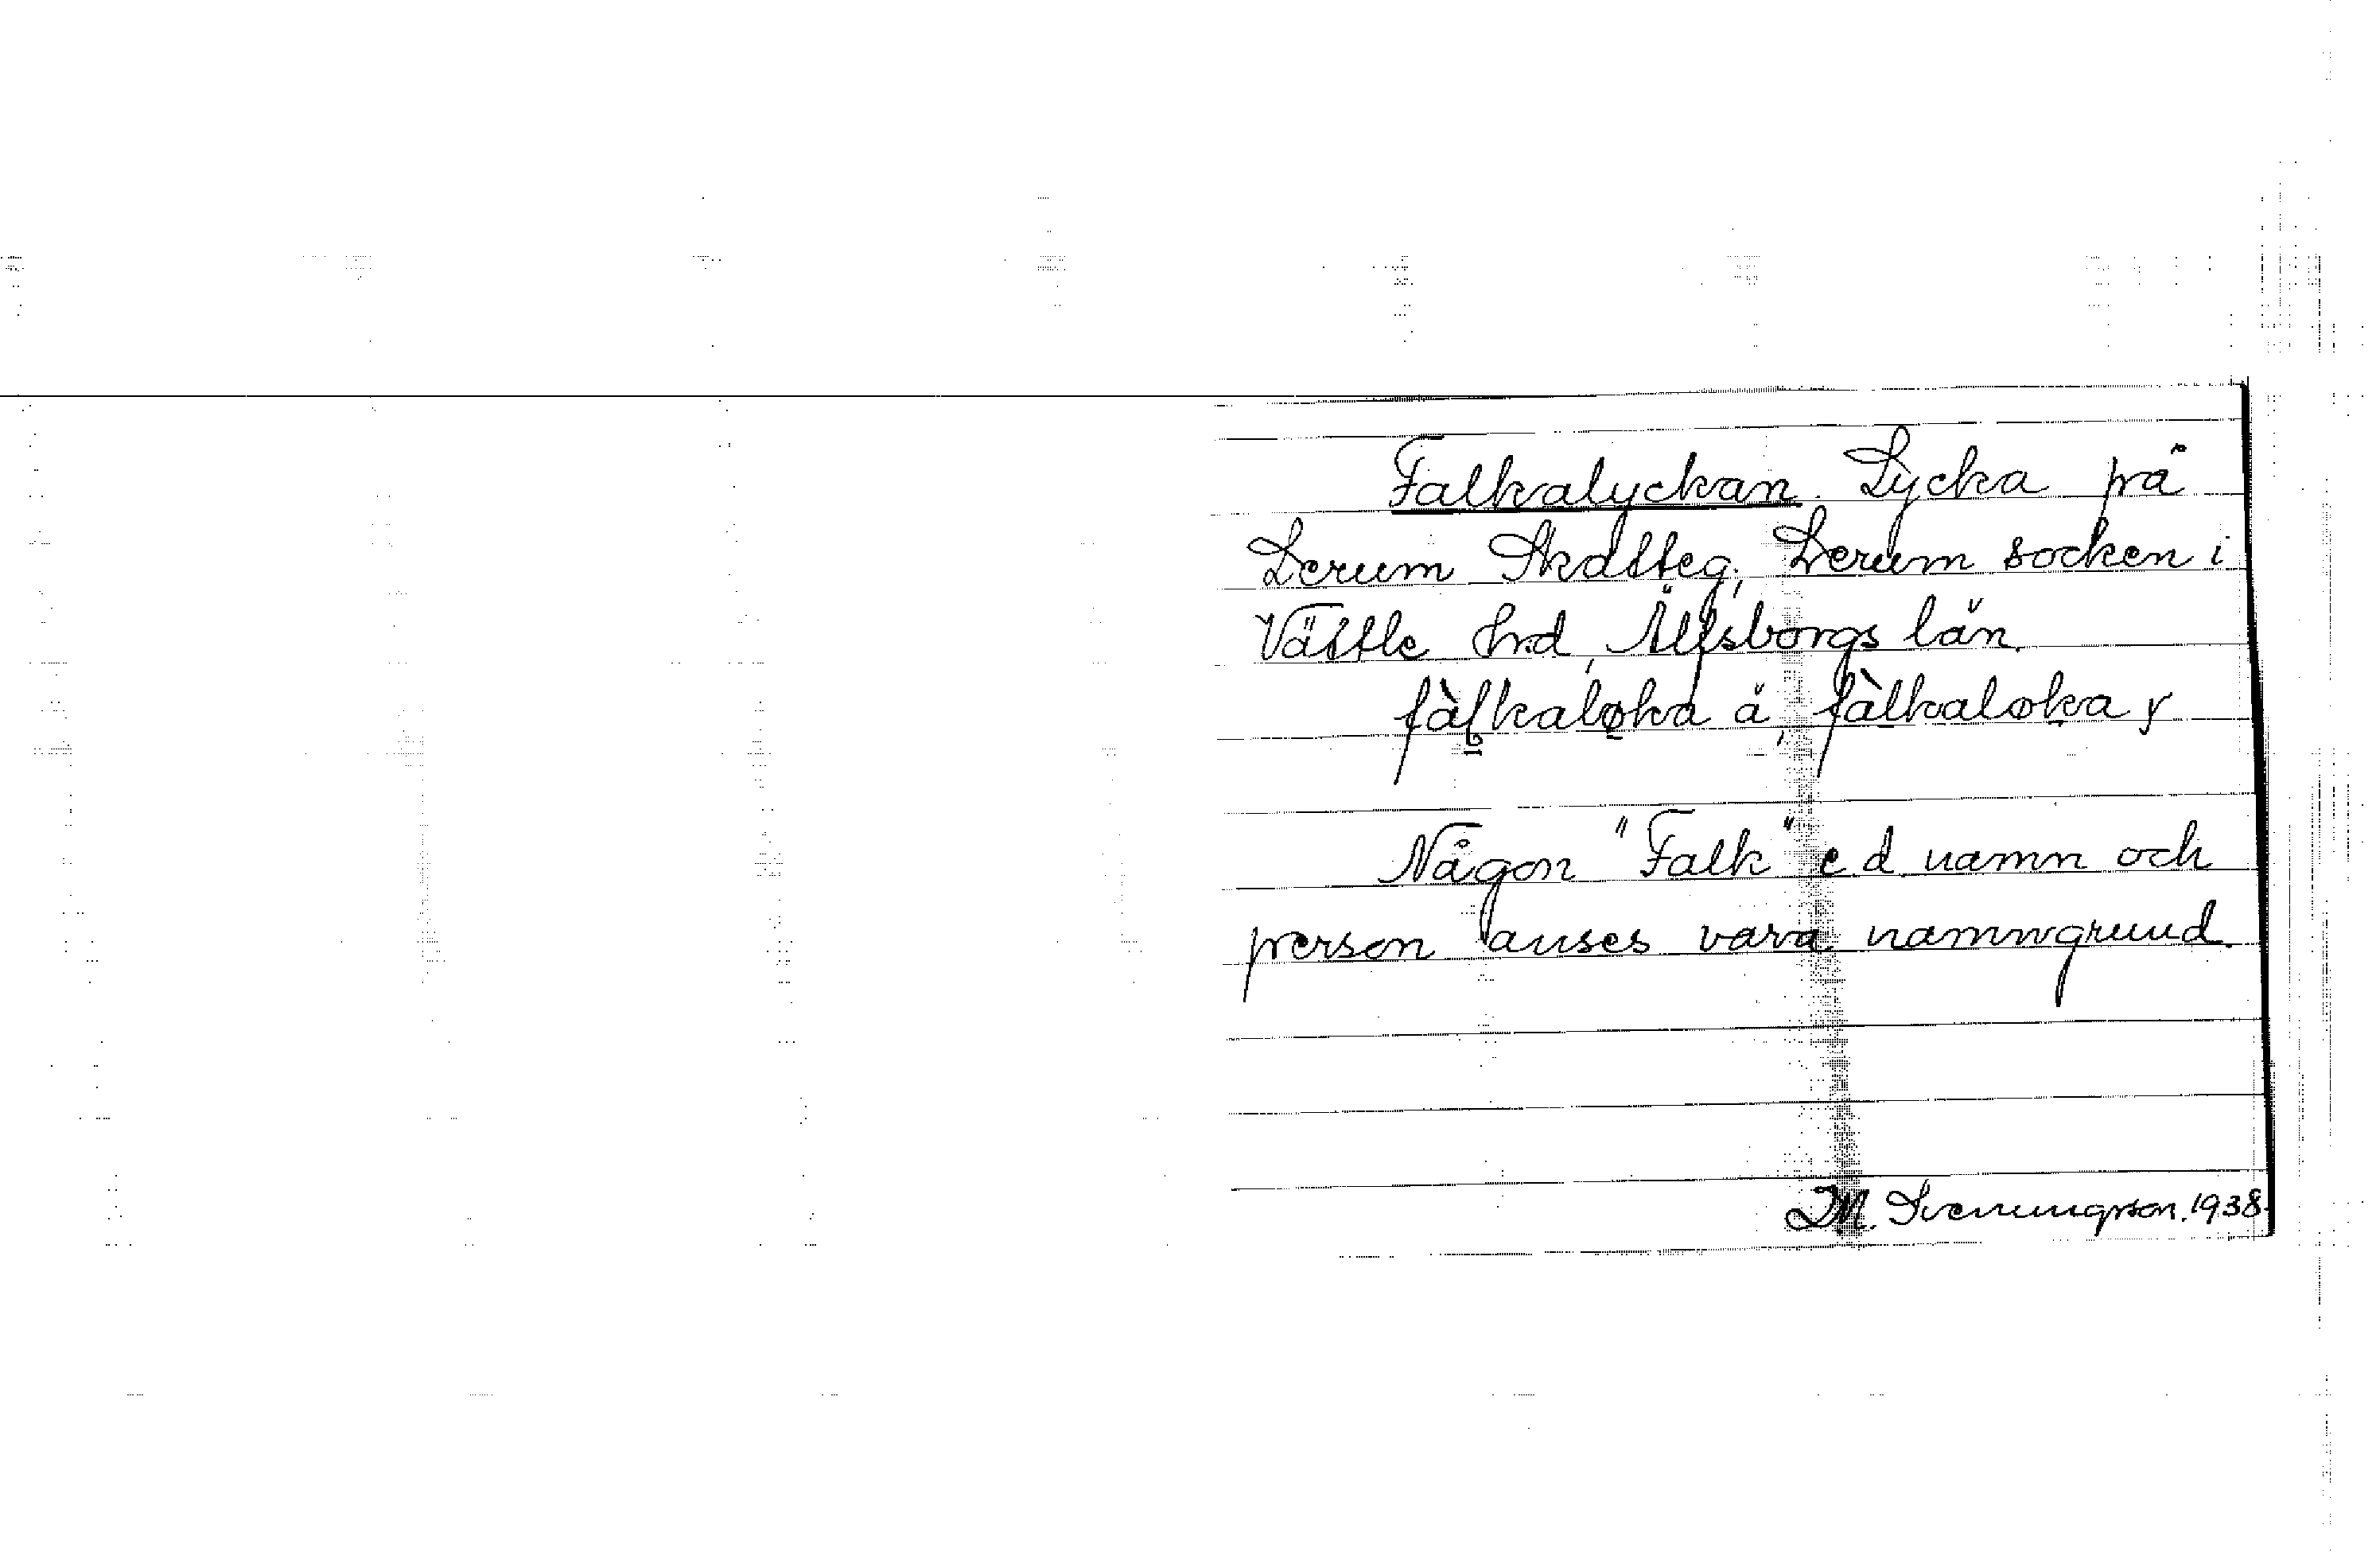 Falkalyckan. Lycka på
Lerum Skatteg., Lerum socken i
Vättle hrd, Älfsborgs län.
fàlkaløka ä, fàlkaløka y
Någon "Falk" e d namn och
person anses vara namngrund.
I M. Svenungsson. 1938.